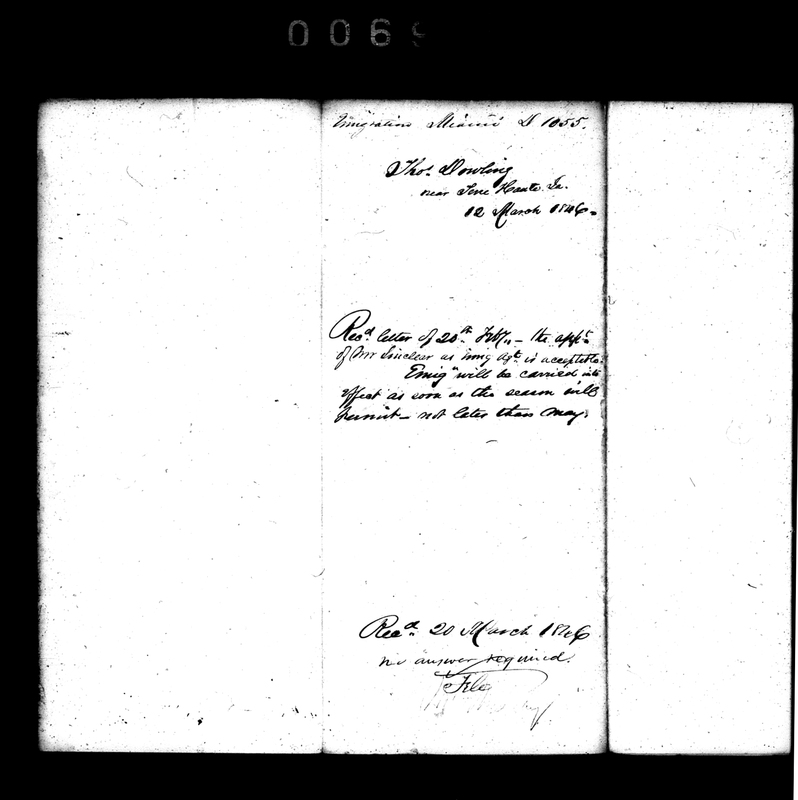 0069
Emigration Miami D 1055.
Thos. Dowling
near Terre Haute Ia.
12 March 1846.
Recd. letter of 20th Feby. – the appt.
of Mr Sinclear as emig agt. is acceptable.
Emign will be carried into
effect as soon as the season will
permit – not later than May.
Recd. 20 March 1846
no answer required.
File